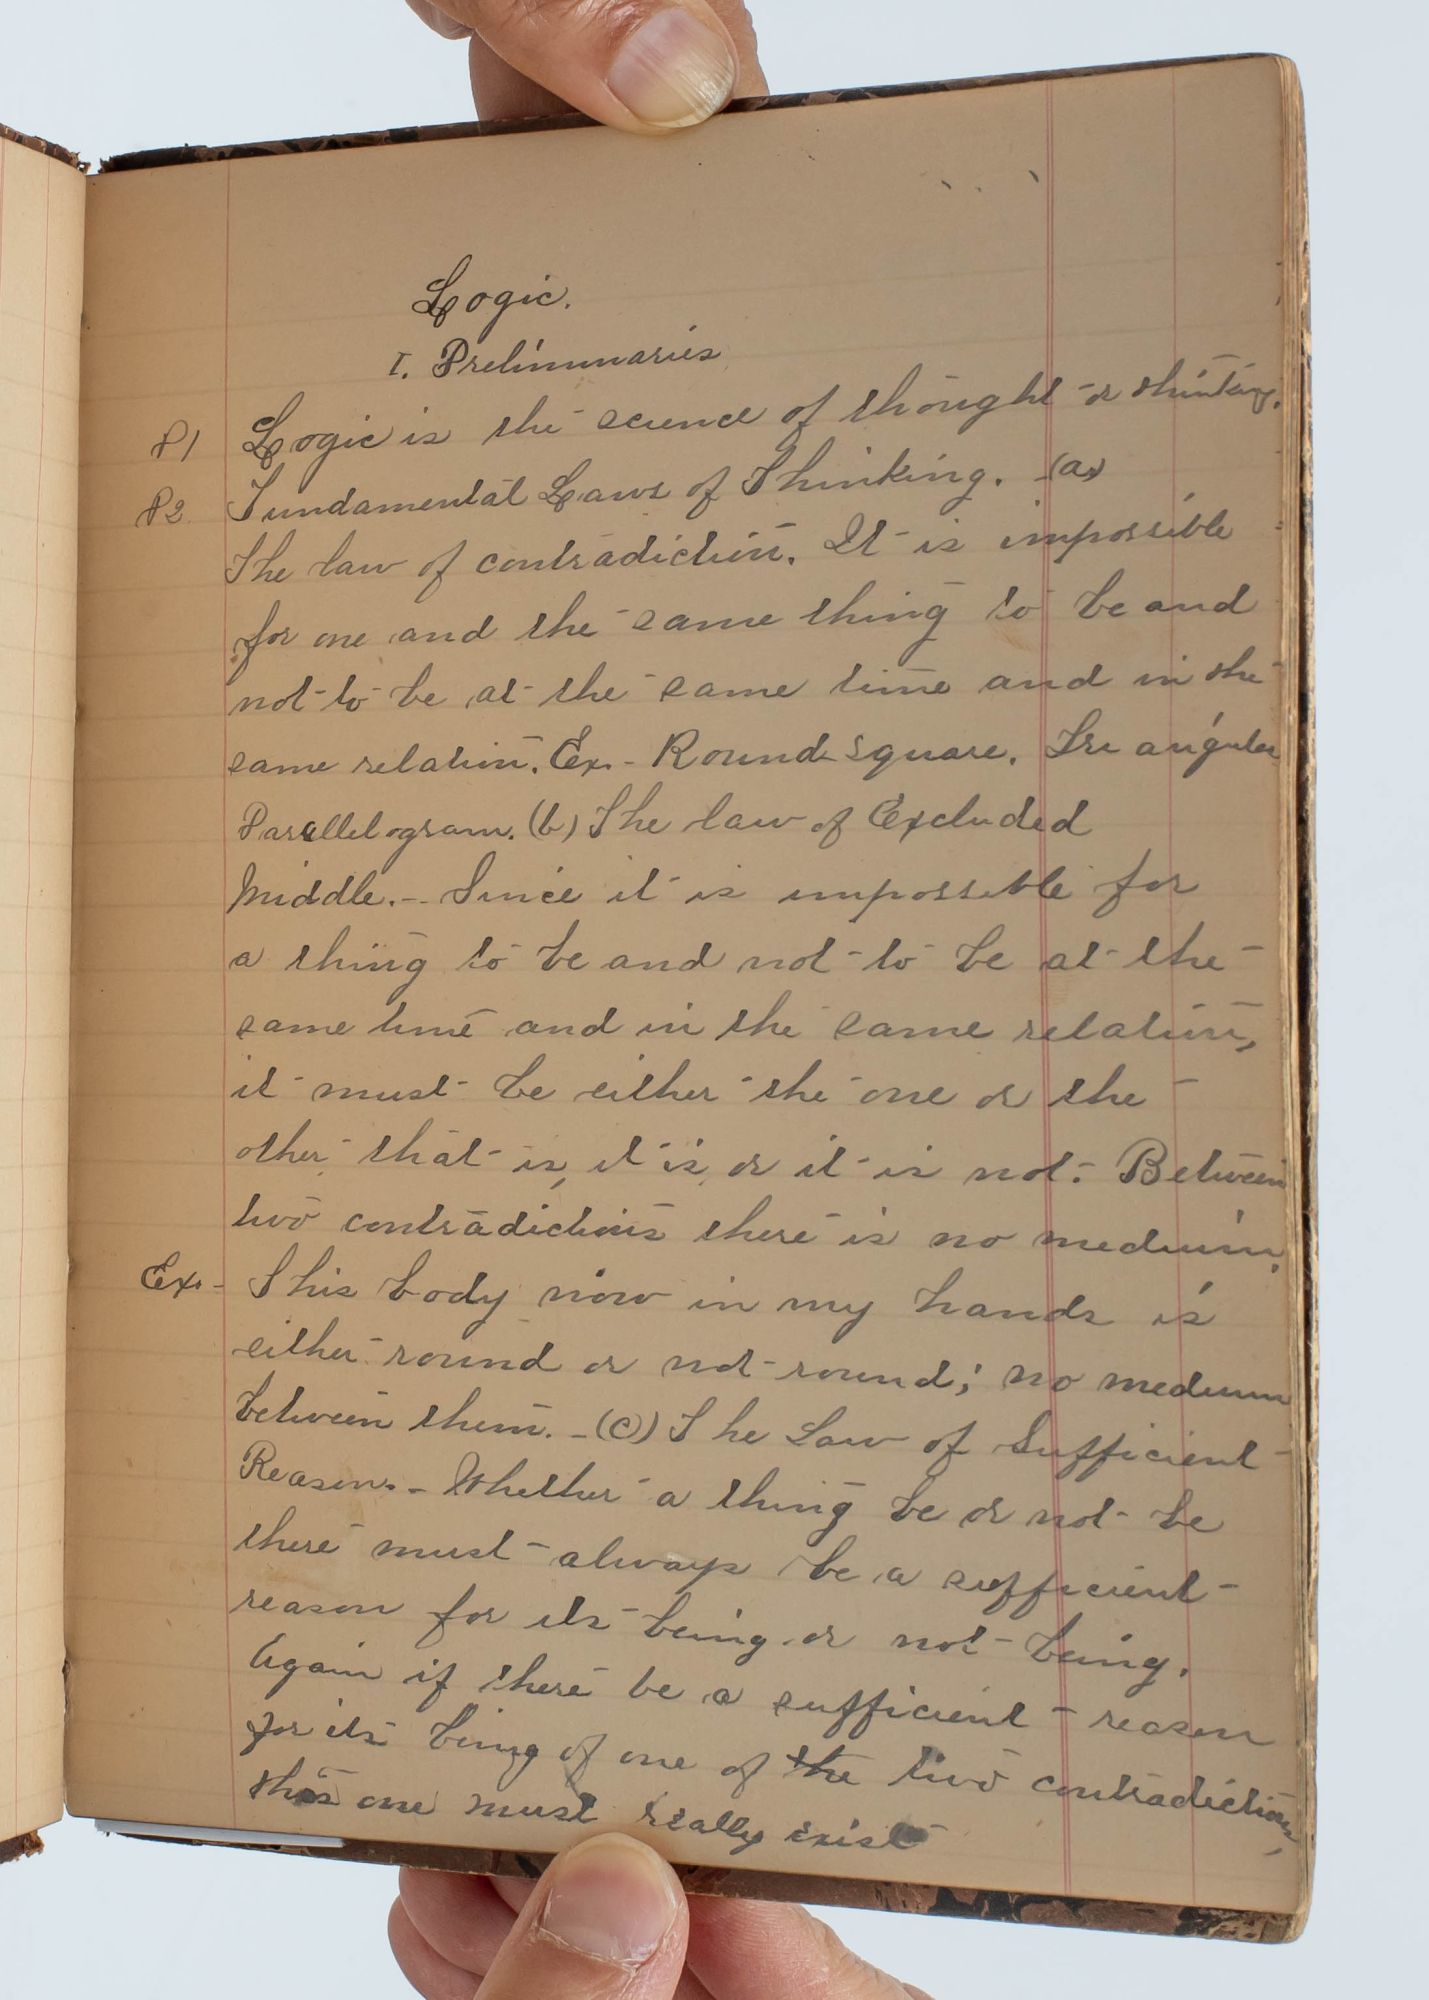 Logic.
I. Preliminaries
P1 Logic is the science of thought or thinking.
P2. Fundamental Laws of Thinking. (a)
The law of contradiction. It is impossible
for one and the same thing to be and
not to be at the same time and in the
same relation. Ex. - Round square. Triangular
Parallelogram. (b) The law of Excluded
Middle. - Since it is impossible for
a thing to be and not to be at the
same time and in the same relation,
it must be either the one or the
other, that is, it is, or it is not. Between
two contradictions there is no medium.
Ex. - This body now in my hands is
either round or not-round; no medium
between them. - (c) The Law of Sufficient
Reason. - Whether a thing be or not be
there must always be a sufficient
reason for its being or not being.
Again if there be a sufficient reason
for its being of one of the two contradictions,
this one must really exist